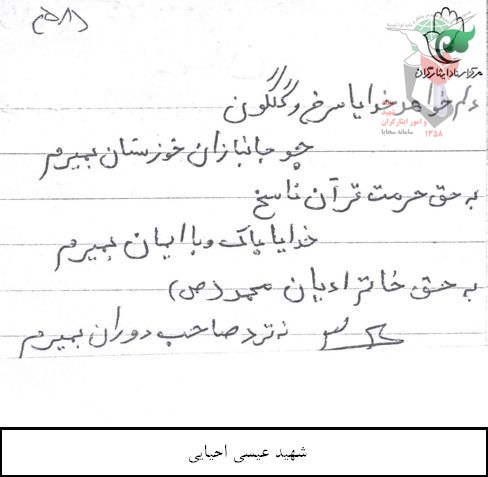 مرکز اسناد ایثارگران
و امور ایثارگران
سامانه سجایا
۱۳۵۸
دلم خواهد خدایا سرخ و گلگون
چو جانبازان خوزستان بمیرم
به حق حرمت قرآن ناسخ
خدایا پاک و با ایمان بمیرم
به حق خاتم ادیان محمد (ص)
نزد صاحب دوران بمیرم
شهید عیسی احیایی